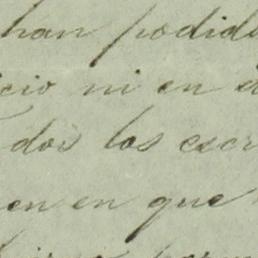 han podido
icio ni en e
dos los escr
en en que